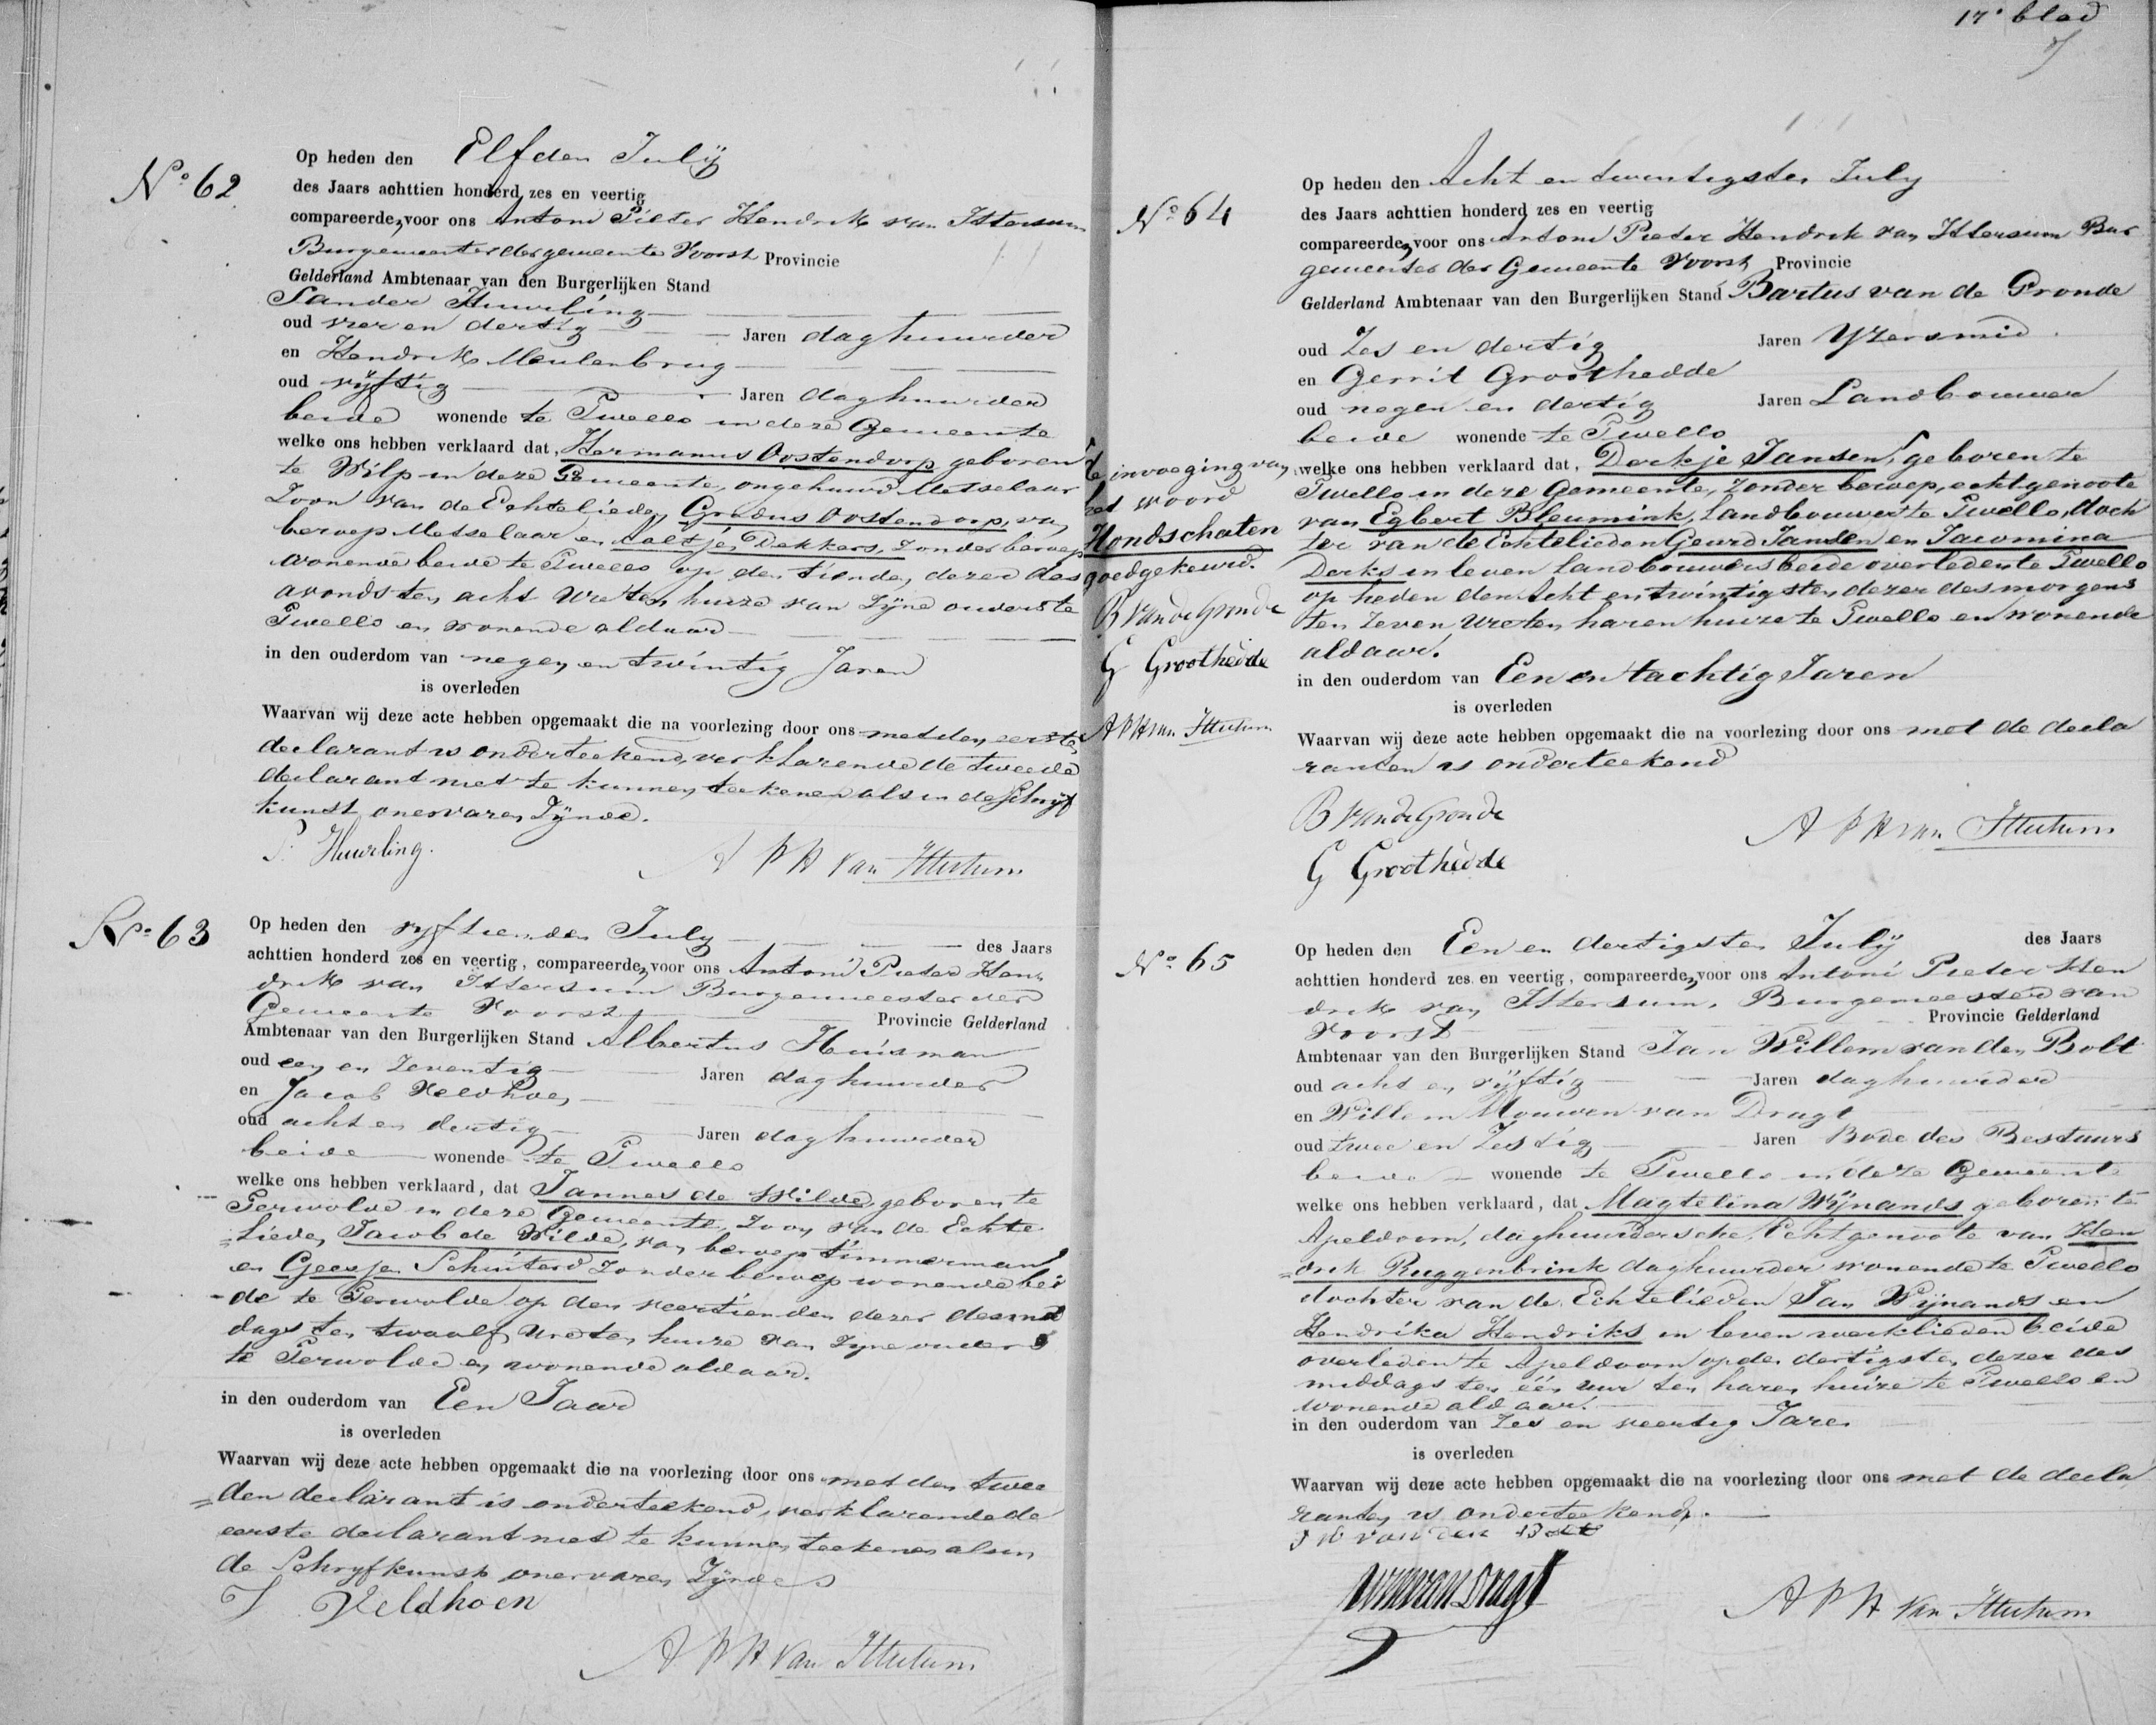 No 62
Op heden den Elfden Julij
des Jaars achttien honderd zes en veertig
compareerden voor ons Antoni Pieter Hendrik van Ittersum
Burgemeester der gemeente Voorst Provincie
Gelderland Ambtenaar van den Burgerlijken Stand
Sander Huurling
oud vier en dertig Jaren daghuurder
en Hendrik Meulenbrug
oud vijftig Jaren daghuurder
beide wonende te Twello in deze Gemeente
welke ons hebben verklaard dat, Hermanus Oostendorp geboren
te Wilp in deze Gemeente, ongehuwd Metselaar
Zoon van de Echtelieden Gradus Oostendorp, van
beroep Metselaar en Aaltjen Dekkers, zonder beroep
wonende beide te Twello op den tienden dezer des
avonds ten acht Ure ten huize van Zijne ouders te
Twello en wonende aldaar
in den ouderdom van negen en twintig Jaren
is overleden
Waarvan wij deze acte hebben opgemaakt die na voorlezing door ons met den eersten
declarant is onderteekend, verklarende de tweede
declarant niet te kunnen teekenen als in de Schrijf
kunst onervaren Zijnde.
S. Huurling.
A P H van Ittersum
No 63
Op heden den vyftienden July des Jaars
achttien honderd zes en veertig, compareerden voor ons Antoni Pieter Hen
drik van Ittersum Burgemeester der
Gemeente Voorst Provincie Gelderland
Ambtenaar van den Burgerlijken Stand Albertus Huisman
oud een en Zeventig Jaren daghuurder
en Jacob Veldhoen
oud acht en dertig Jaren daghuurder
beide wonende te Twello
welke ons hebben verklaard, dat Jannes de Wilde, geboren te
Terwolde in deze Gemeente, Zoon van de Echte
lieden Jacob de Wilde, van beroep timmerman
en Geesjen Schuiterd Zonder beroep wonende bei
de te Terwolde op den veertienden dezer des mid
dags ten twaalf Ure ten huize van Zijne ouders
te Terwolde en wonende aldaar.
in den ouderdom van Een Jaar
is overleden
Waarvan wij deze acte hebben opgemaakt die na voorlezing door ons met den twee
den declarant is onderteekend, verklarende de
eerste declarant niet te kunnen teekenen als in
de Schryfkunst onervaren Zijnde
J Veldhoen
A P H van Ittersum
17e blad
No 64
Op heden den Acht en twentigsten July
des Jaars achttien honderd zes en veertig
compareerden voor ons Antoni Pieter Hendrik van Ittersum Bur
gemeester der Gemeente Voorst Provincie
Gelderland Ambtenaar van den Burgerlijken Stand Bartus van de Gronde
oud Zes en dertig Jaren Yzersmid
en Gerrit Groothedde
oud negen en dertig Jaren Landbouwer
beide wonende te Twello
welke ons hebben verklaard dat, Derkje Jansen, geboren te
Twello in deze Gemeente, zonder beroep, echtgenoote
van Egbert Bleumink, Landbouwer te Twello, doch
ter van de Echtelieden Geurd Jansen en Jacomina
Derks in leven Landbouwers beide overleden te Twello
op heden den Acht en twintigsten dezer des morgens
ten Zeven Ure ten haren huize te Twello en wonende
aldaar.
in den ouderdom van Een en tachtig Jaren
is overleden
Waarvan wij deze acte hebben opgemaakt die na voorlezing door ons met de decla
ranten is onderteekend
B van de Gronde
A P H van Ittersum
G Groothedde
de invoeging van
het woord
Hondschoten
goedgekeurd.
B van de Gronde
G Groothedde
A P H van Ittersum
No 65
Op heden den Een en dertigsten Julij des Jaars
achttien honderd zes en veertig, compareerden voor ons Antoni Pieter Hen
drik van Ittersum, Burgemeester van
Voorst Provincie Gelderland
Ambtenaar van den Burgerlijken Stand Jan Willem van den Bolt
oud acht en vijftig Jaren daghuurder
en Willem Mouwen van Dragt
oud twee en Zestig Jaren Bode des Bestuurs
beide wonende te Twello in deze Gemeente
welke ons hebben verklaard, dat Magtelina Wijnands geboren te
Apeldoorn, daghuurdersche, Echtgenoote van Hen
drik Ruggenbrink daghuurder wonende te Twello
dochter van de Echtelieden Jan Wijnands en
Hendrika Hendriks in leven werklieden beide
overleden te Apeldoorn op den dertigsten dezer des
middags ten één uur ten haren huize te Twello en
wonende aldaar.
in den ouderdom van Zes en veertig Jaren
is overleden
Waarvan wij deze acte hebben opgemaakt die na voorlezing door ons met de decla
ranten is onderteekend.
J W van den Bolt
WM van Dragt
A P H van Ittersum